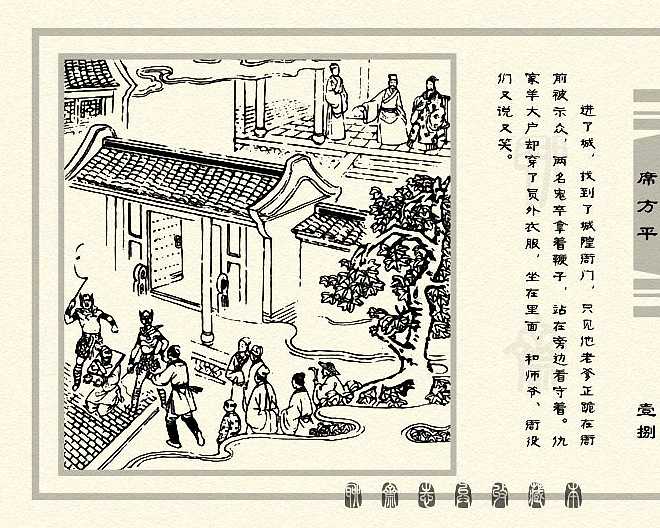 进了城，找到了城隍衙门，只见他老爹正跪在衙
前被示众，两名鬼卒拿着鞭子，站在旁边看守着。仇
家羊大户却穿了员外衣服，坐在里面，和师爷、衙役
们又说又笑。
席方平
壹捌